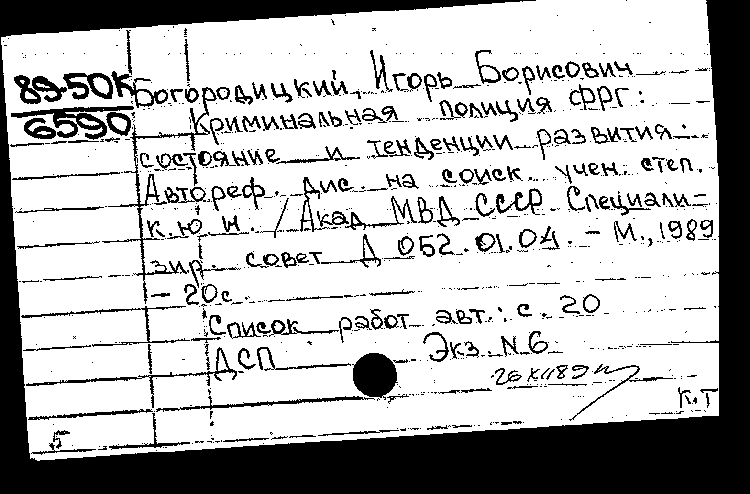 89-50К
6590
Богородицкий, Игорь Борисович
Криминальная полиция ФРГ:
состояние и тенденции развития:
Автореф. дис. на соиск. учен. степ.
к.ю н. / Акад МВД СССР. Специали-
зир. совет Д 052.01.04. - М., 1989
- 20с.
Список работ авт.: с. 20
ДСП Экз. N 6
К.Т
5